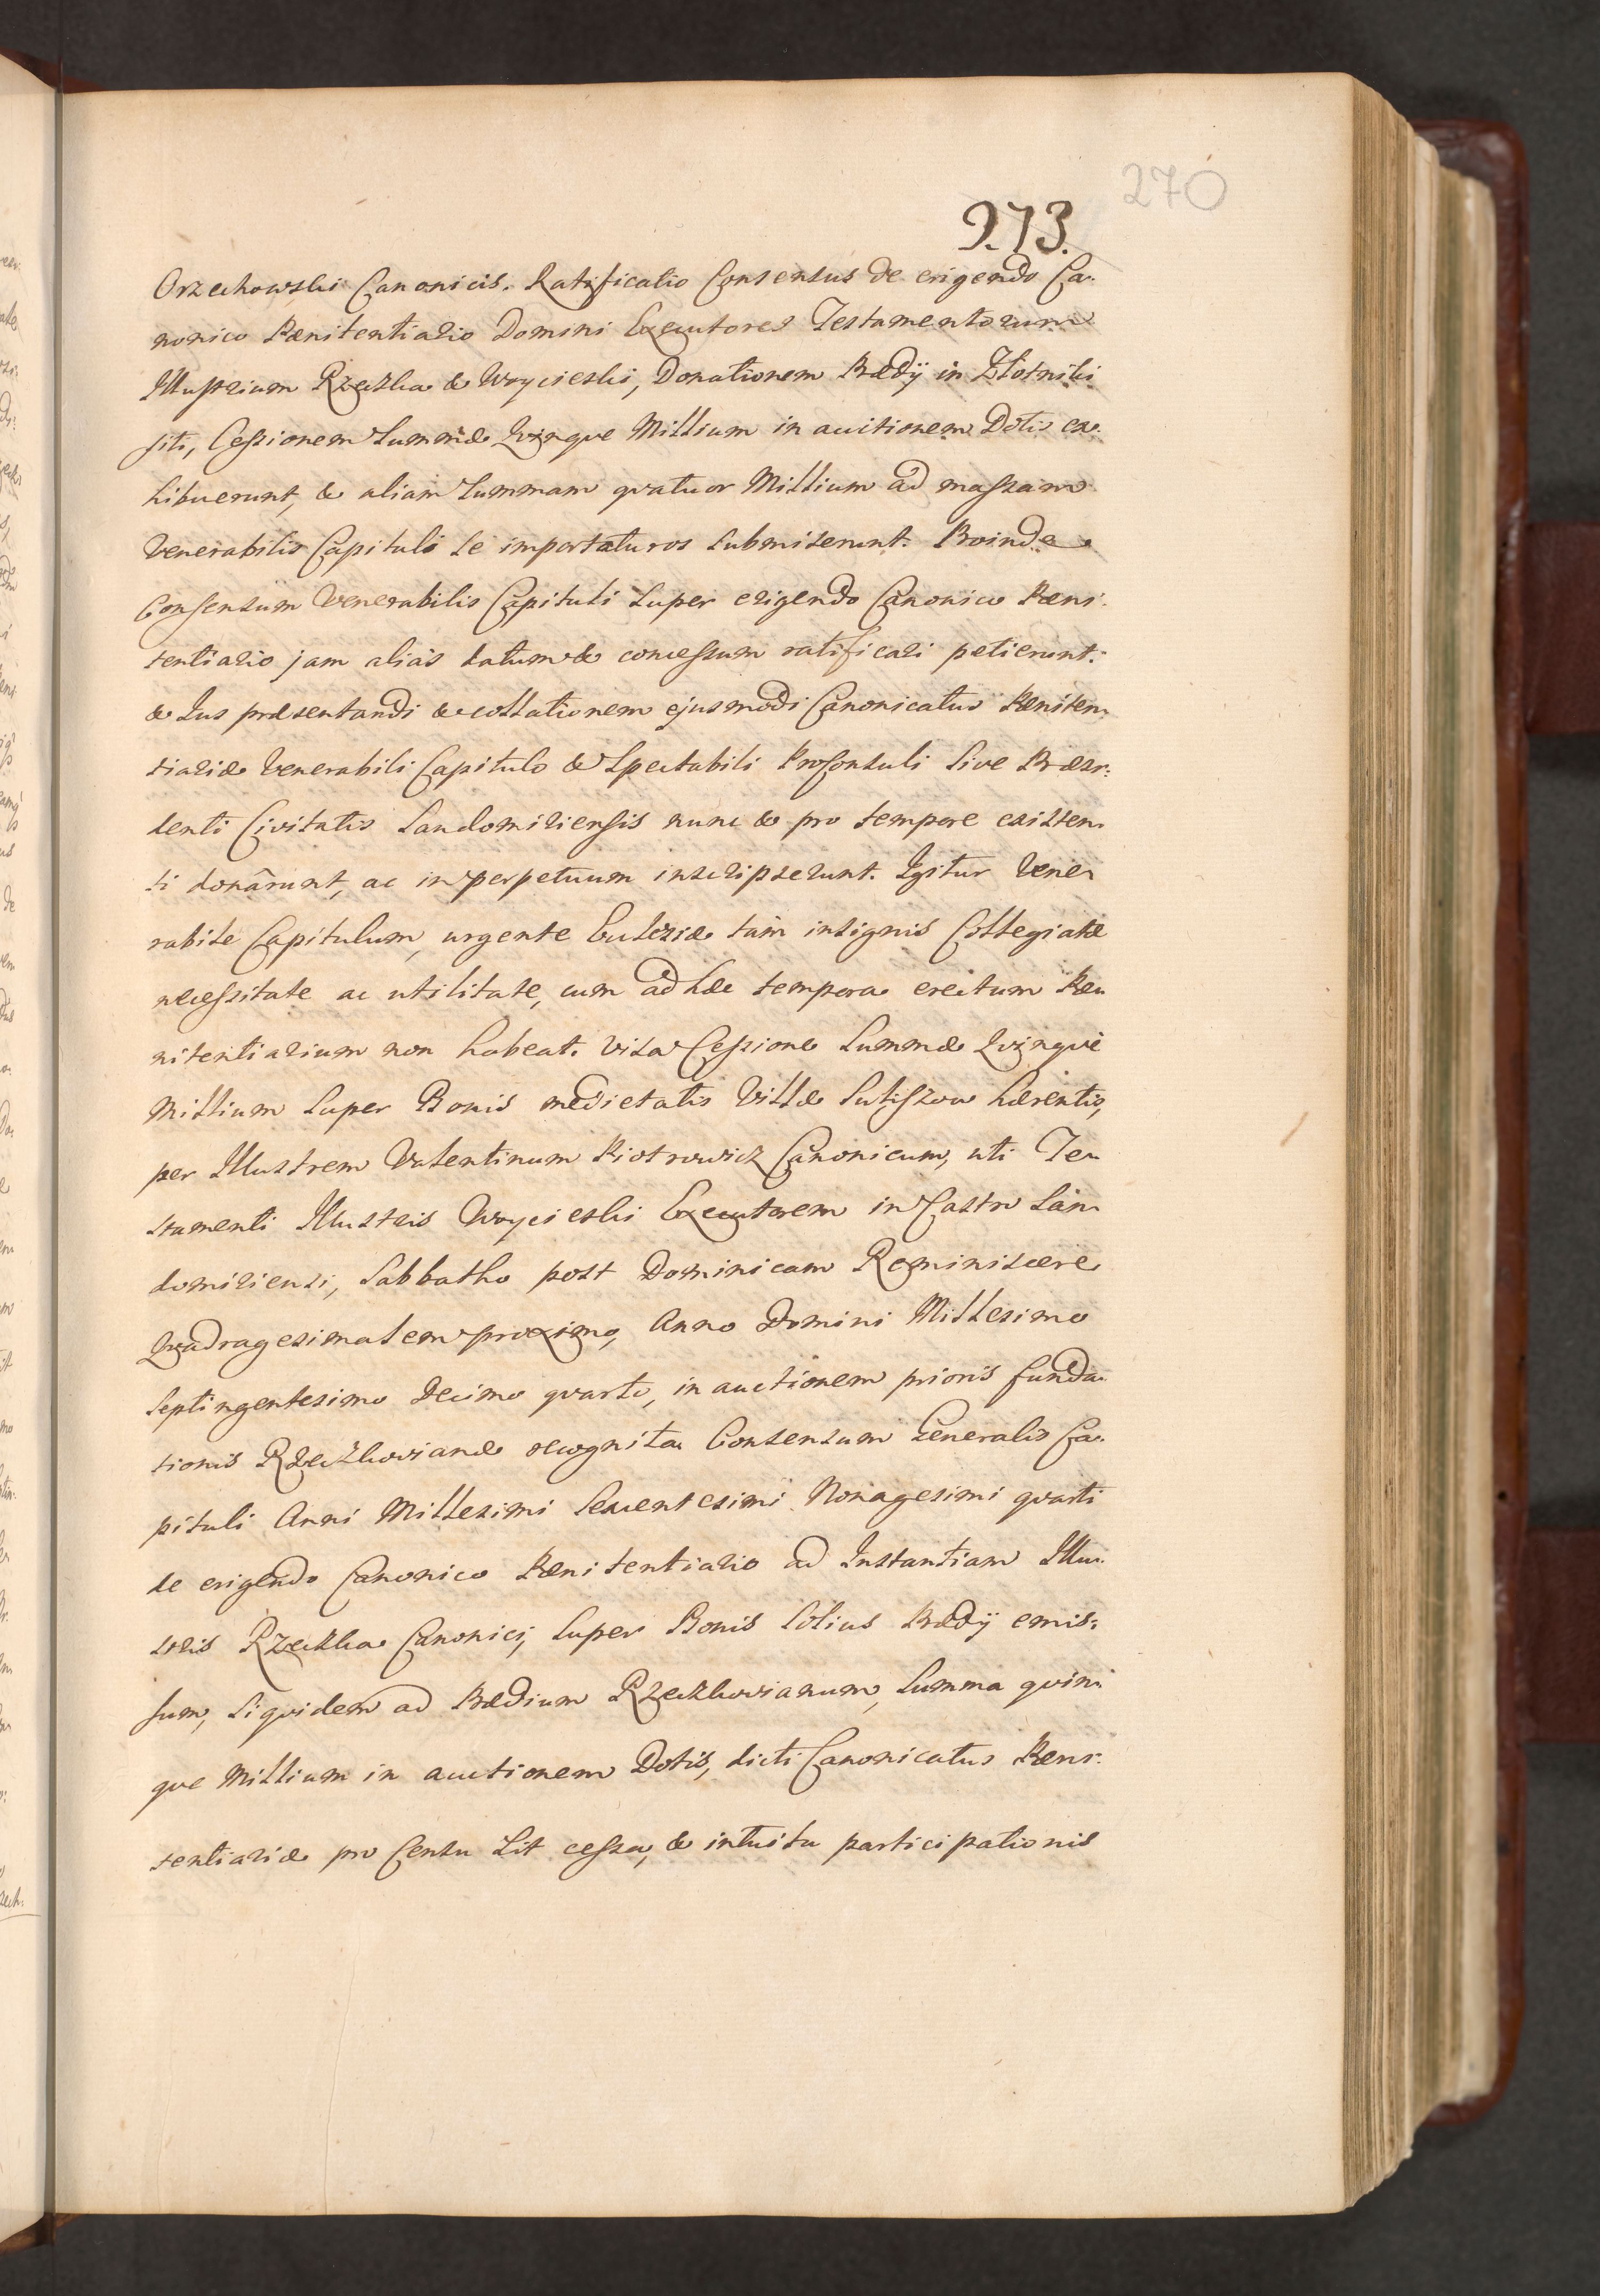 270
973.
Orzechowski Canonicis. Ratificatio Consensus de erigendo Ca-
nonico Pænitentiario Domini Executores Testamentorum
Illustrium Rzeczka & Woycieski, Donationem Prædÿ in Złotniki
siti, Cessionem Summæ Quinque Millium in auctionem Dotis ex-
hibuerunt, & aliam Summam quatuor Millium ad massam
Venerabilis Capituli se importaturos submiserunt. Proinde
Consensum Venerabilis Capituli super erigendo Canonico Pæni-
tentiario jam aliàs datum & concessum ratificari petierunt:
& Jus præsentandi & collationem ejusmodi Canonicatus Pæniten-
tiariæ Venerabili Capitulo & Spectabili Proconsuli sive Præsi-
denti Civitatis Sandomiriensis nunc & pro tempore existen-
ti donârunt, ac in perpetuum inscripserunt. Igitur Vene-
rabile Capitulum, urgente Ecclesiæ tàm insignis Collegiatæ
necessitate ac utilitate, cum ad hæc tempora erectum Pæ-
nitentiarium non habeat. Visa Cessione Summæ Quinquè
Millium super Bonis medietatis Villæ Suliszow hærentis,
per Illustrem Valentinum Piotrowicz Canonicum, uti Te-
stamenti Illustris Woycieski Executorem in Castro San-
domiriensi, Sabbatho post Dominicam Reminiscere
Quadragesimalem proximo, Anno Domini Millesimo
Septingentesimo Decimo quarto, in auctionem prioris funda-
tionis Rzeczkovianæ recognita, Consensum Generalis Ca-
pituli Anni Millesimi Sexcentesimi Nonagesimi quarti
de erigendo Canonico Pænitentiario ad Instantiam Illu-
stris Rzeczka Canonici, super Bonis solius Prædÿ emis-
sum, siquidem ad Prædium Rzeczkovianum, Summa quin-
que Millium in auctionem Dotis, dicti Canonicatus Pæni-
tentiariæ pro Censu sit cessa, & intuitu participationis